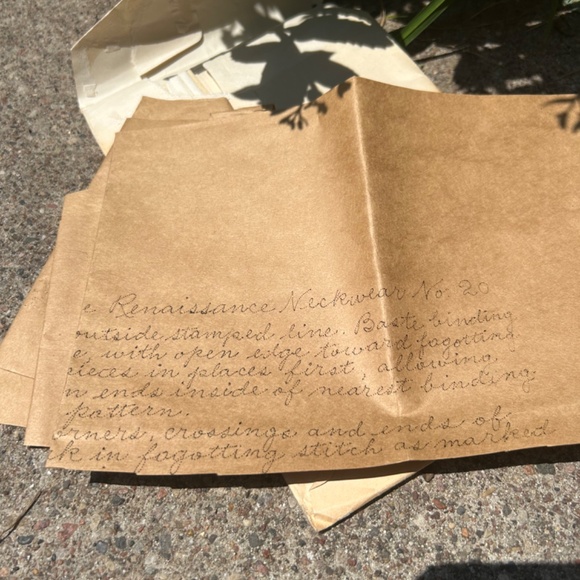 e Renaissance Neckwear No. 20
outside stamped line. Baste binding
e, with open edge toward fogotting
pieces in places first, allowing
n ends inside of nearest binding
pattern.
orners, crossings and ends of
k in fogotting stitch as marked